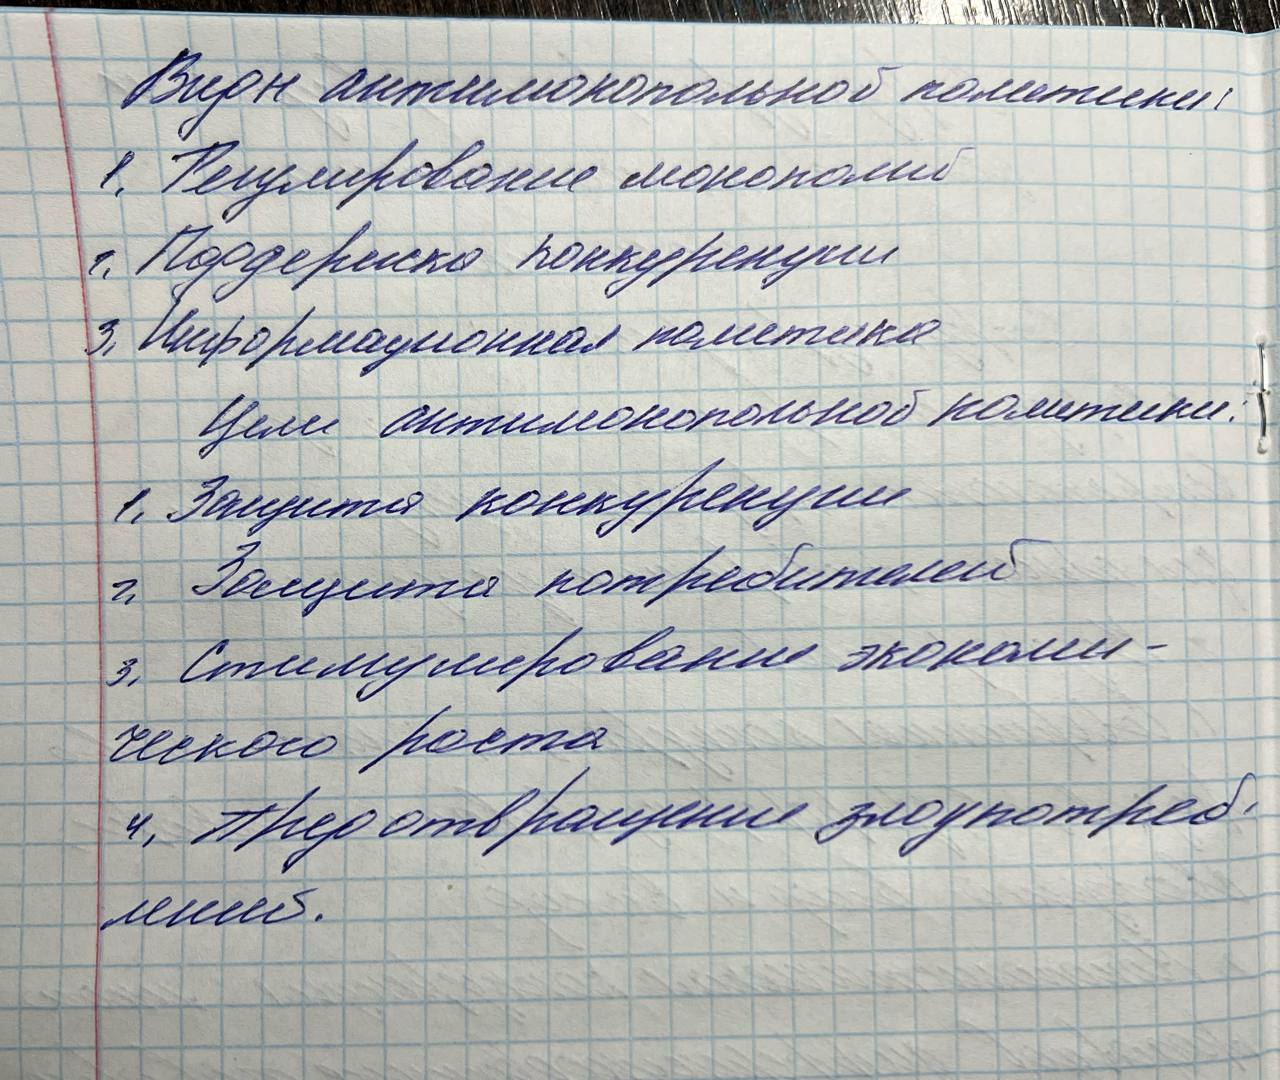 Виды антимонопольной политики:
1. Регулирование монополий
2. Поддержка конкуренции
3. Информационная политика
Цели антимонопольной политики:
1. Защита конкуренции
2. Защита потребителей
3. Стимулирование экономи-
ческого роста
4. Предотвращение злоупотреб-
лений.